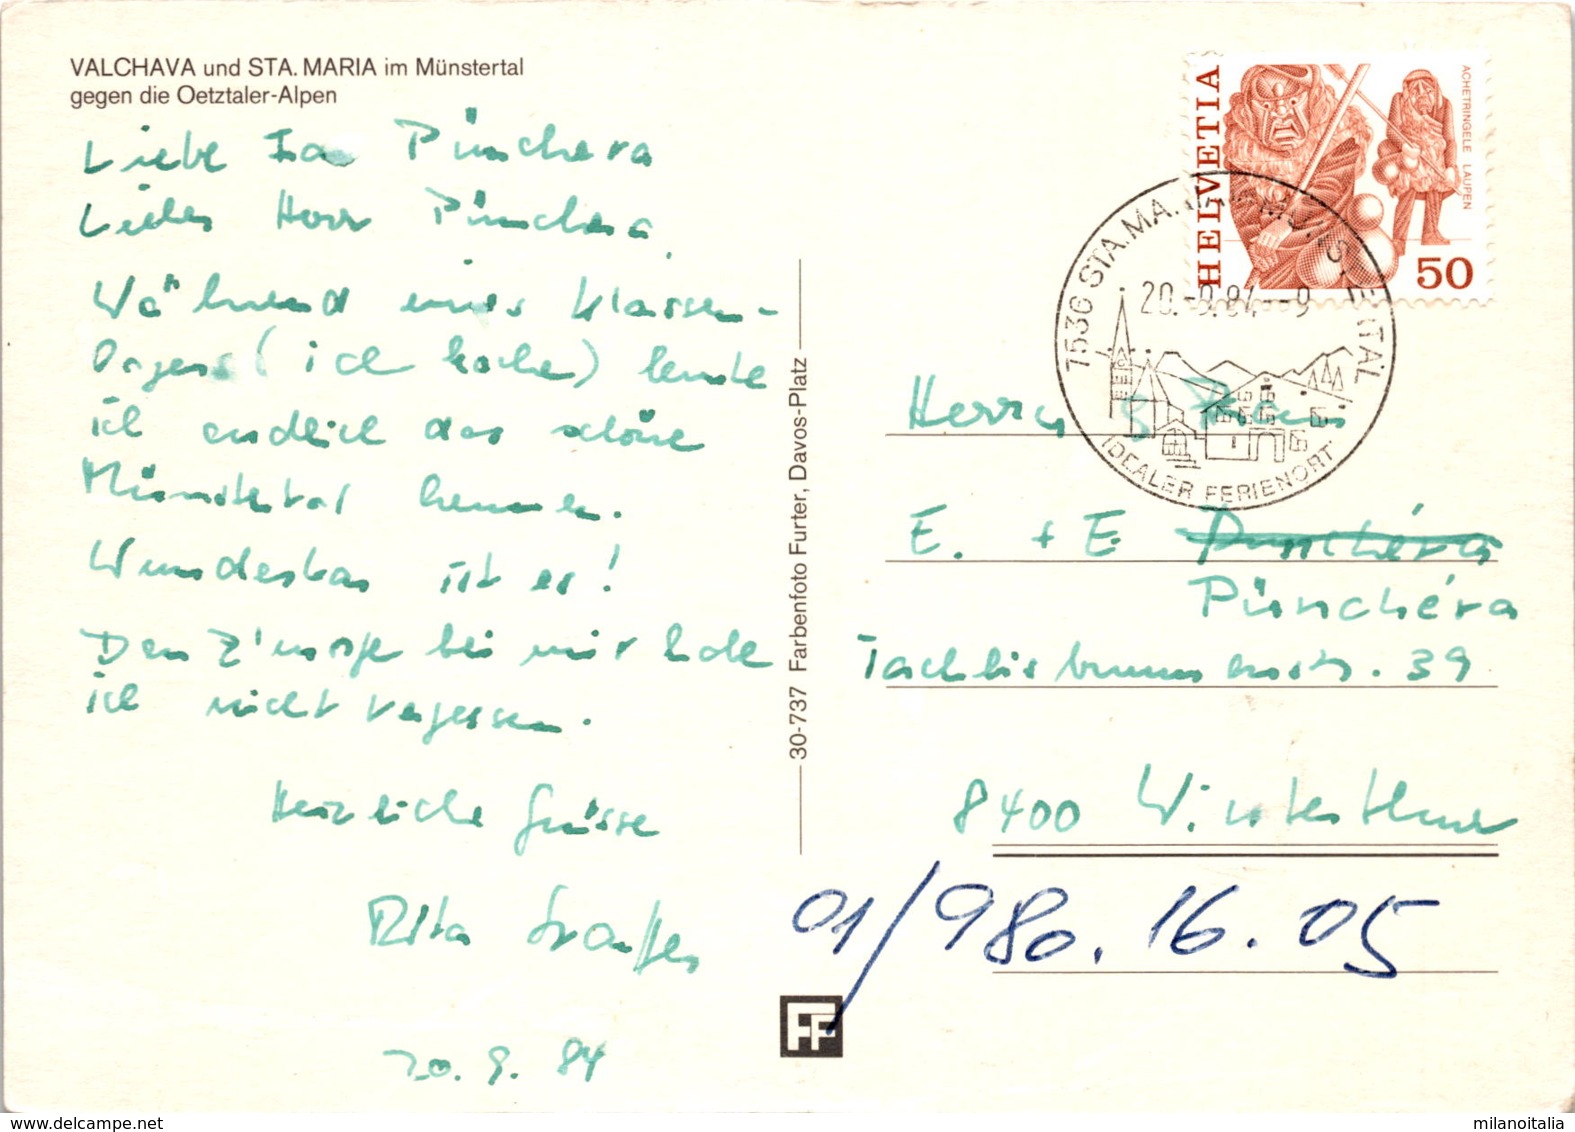 VALCHAVA und STA. MARIA im Münstertal
gegen die Oetztaler-Alpen
Liebe Pünchera
Lieber Herr Pünchera,
Während eines Klassen-
lagers (ich koche) lernte
ich endlich das schöne
Münstertal kennen.
Wunderbar ist es!
Den Z'morge bei mir habe
ich nicht vergessen.
Herzliche Grüsse
Rita
20. 9. 84
30-737 Farbenfoto Furter, Davos-Platz
FF
HELVETIA
ACHETRINGELE LAUPEN
50
7536 STA. MARIA
20.-9.84.-9
IDEALER FERIENORT
Herrn & Frau
E. + E. Punchéra
Pünchéra
39
8400 Winterthur
01/980.16.05
milanoitalia